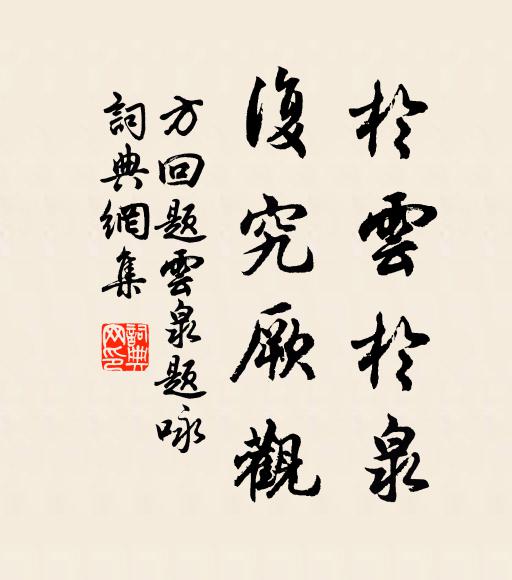 於雲於泉
復究厥觀
方回題雲泉題咏
詞典網集
詞典网印